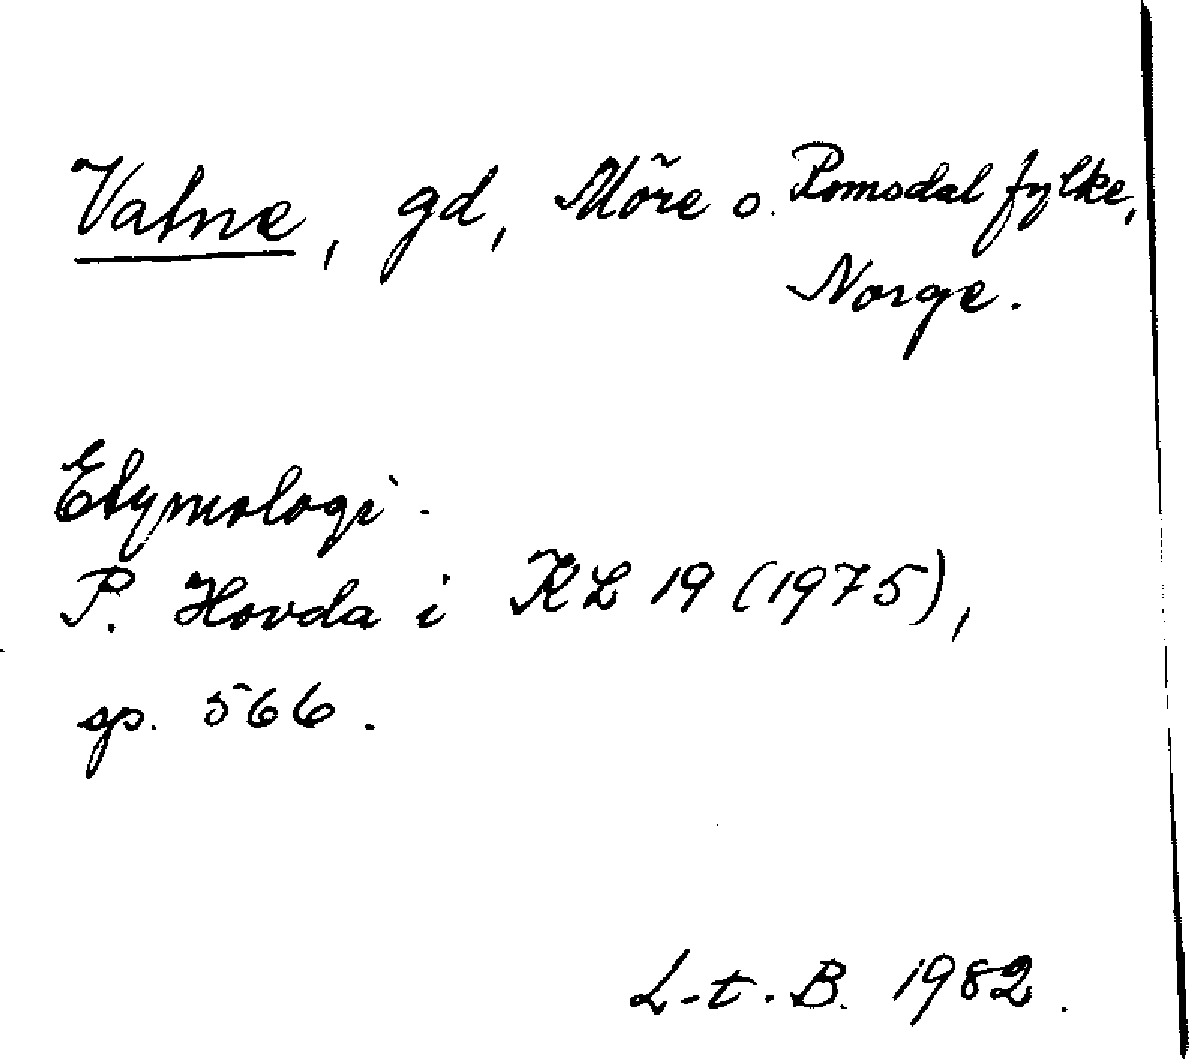 Vatne, gd, Möre o. Romsdal fylke,
Norge.
Etymologi.
P. Hovda i KL 19 (1975),
sp. 566.
L-t. B. 1982.